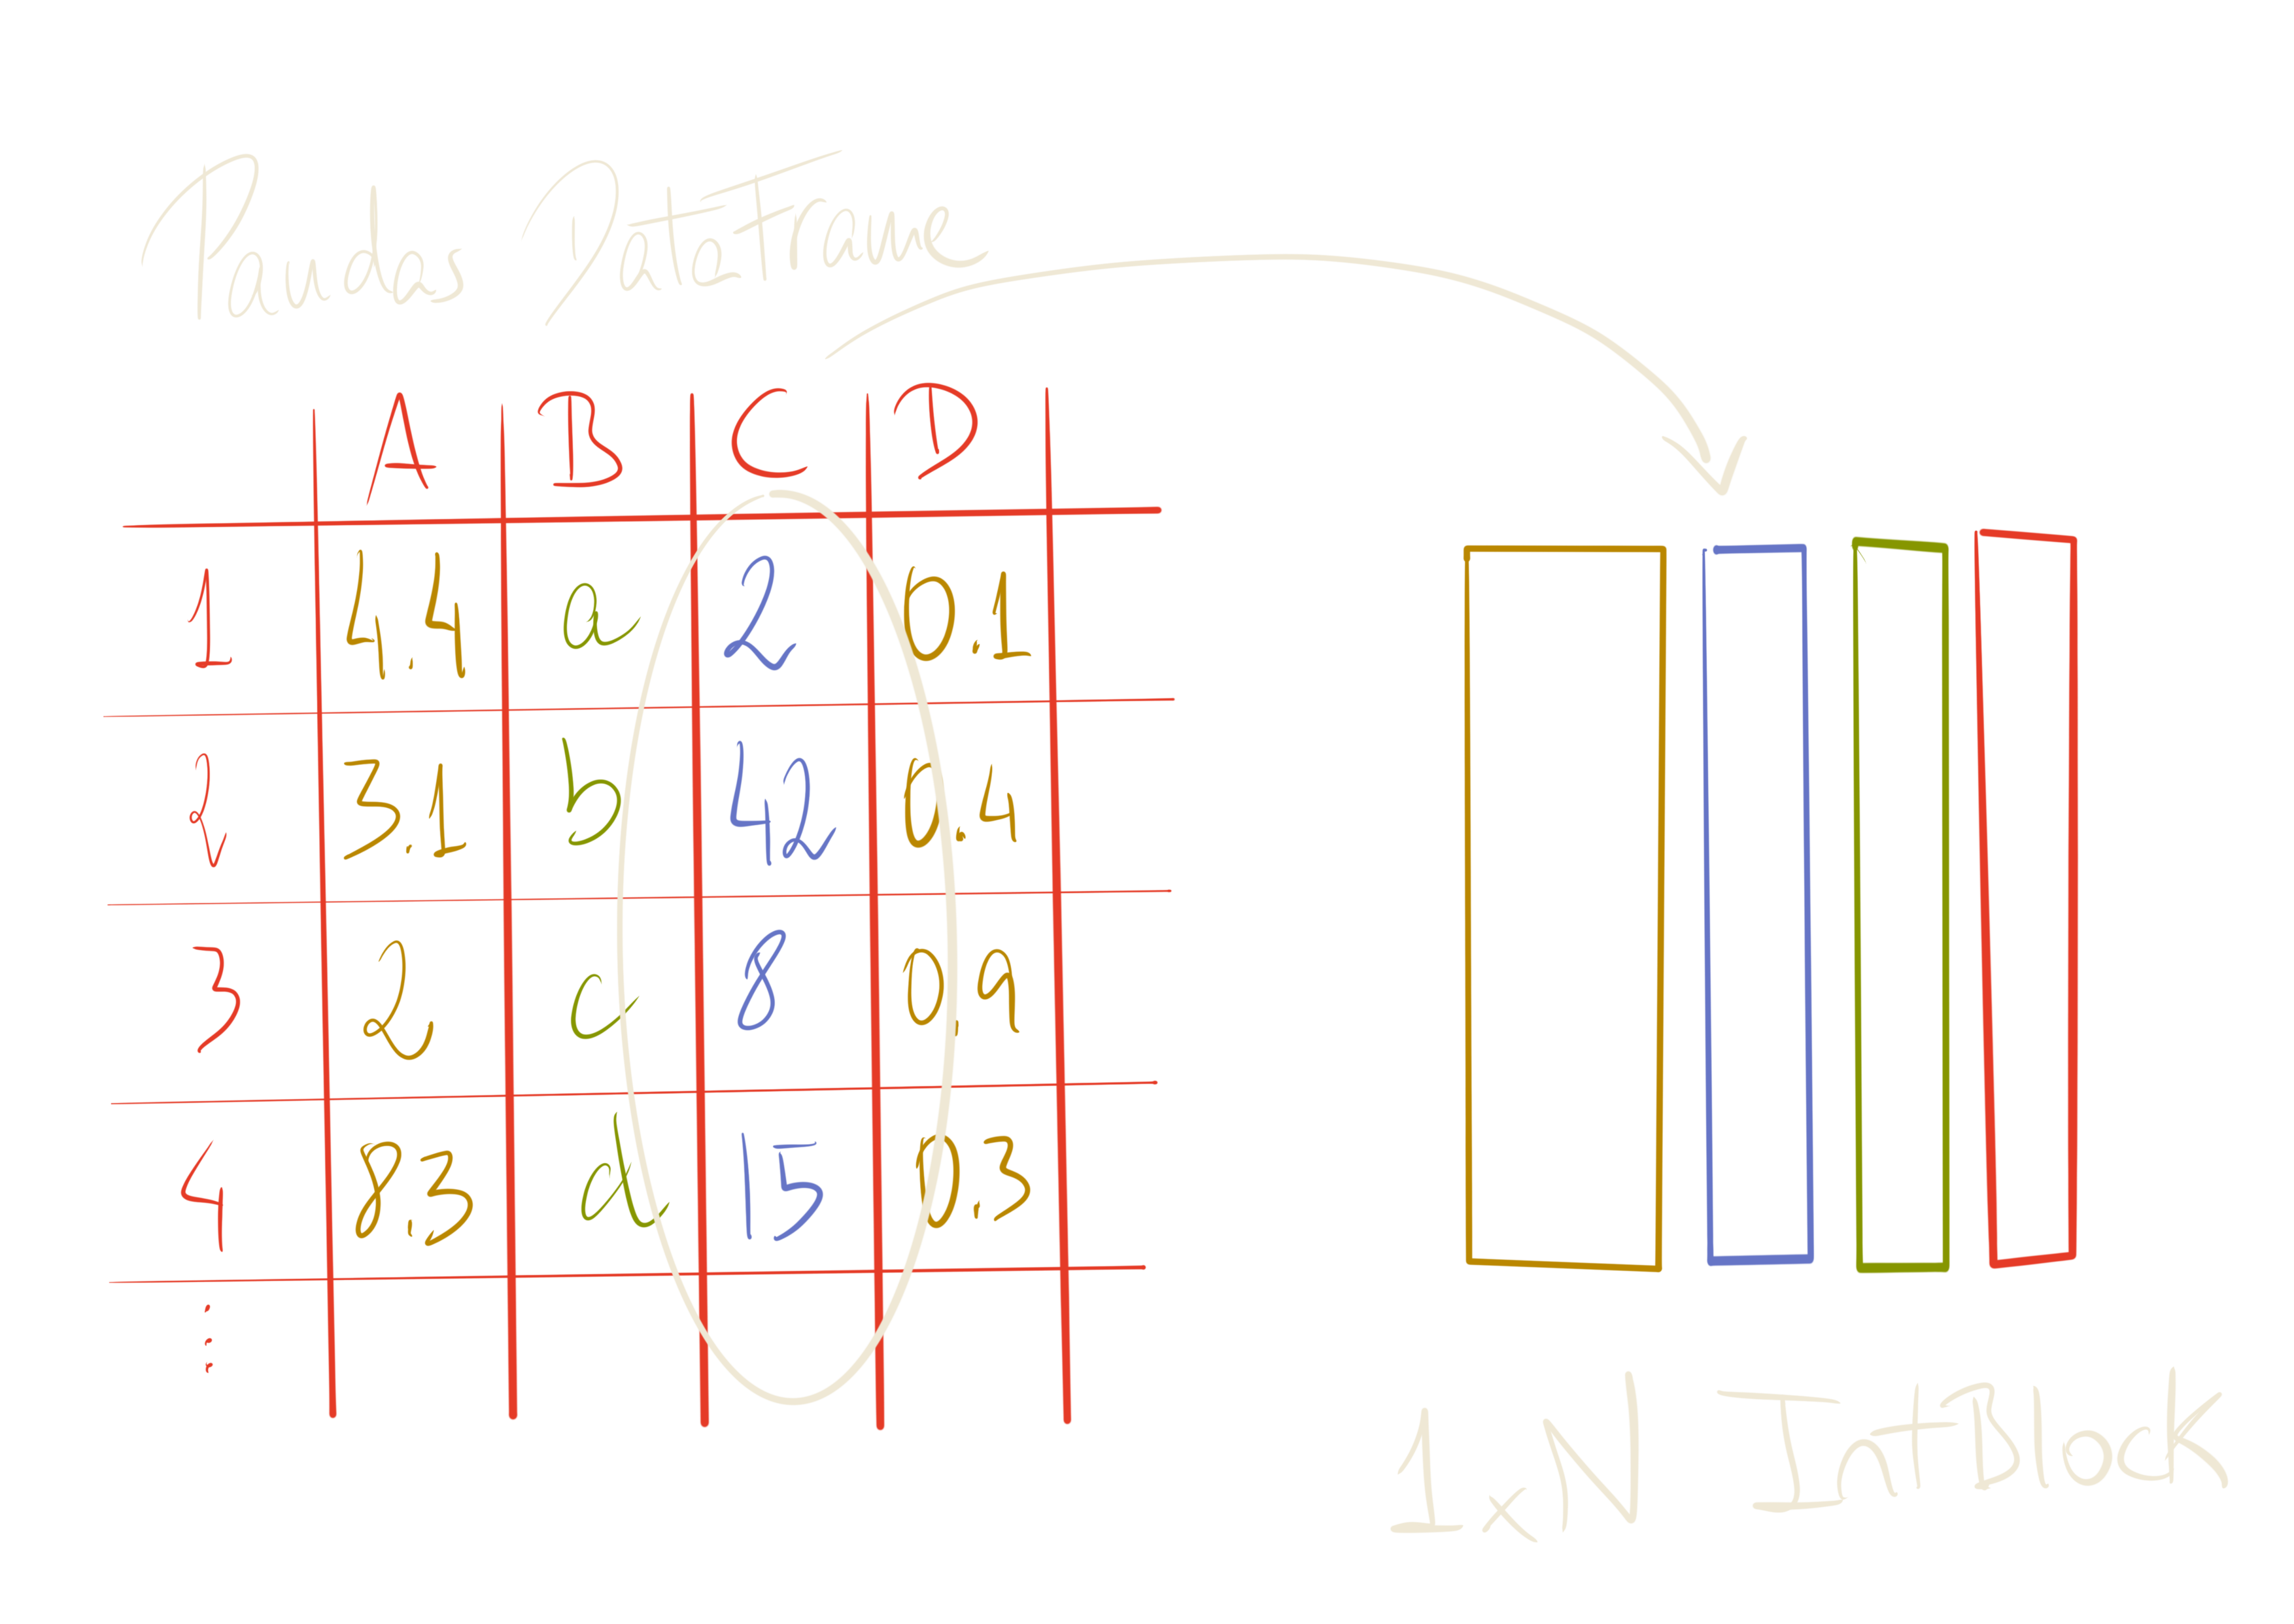 Pandas DataFrame
A B C D
1 4.4 a 2 0.1
2 3.1 b 42 0.4
3 2 c 8 0.9
4 8.3 d 15 0.3
1xN IntBlock